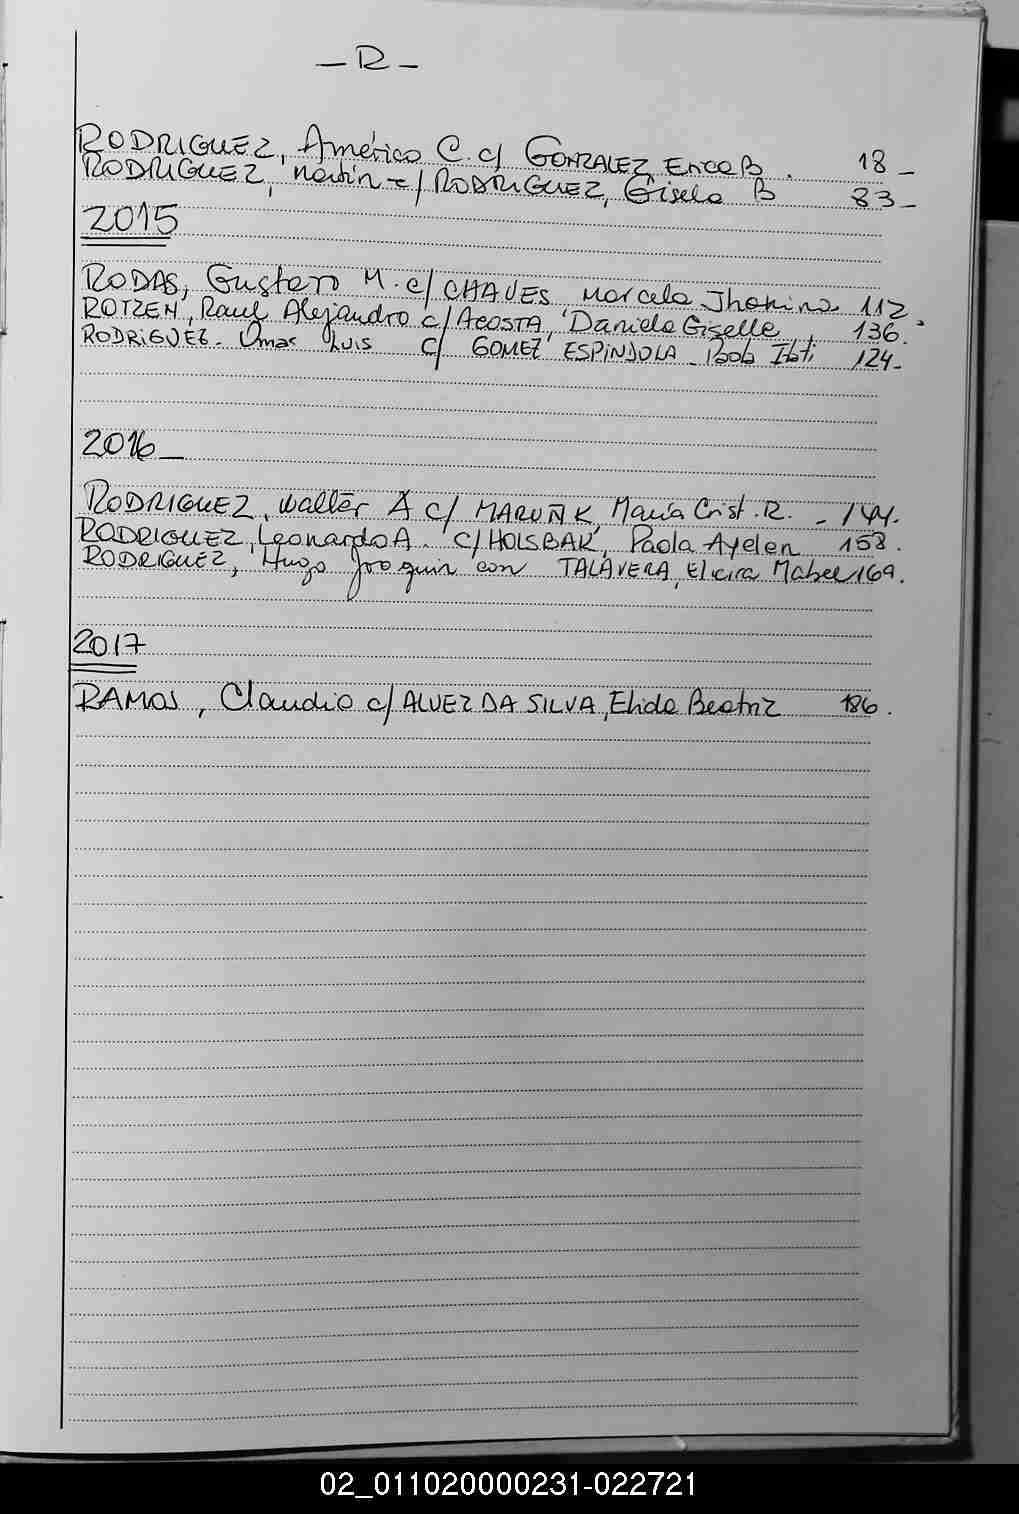 - R -
RODRIGUEZ, Américo C. c/ GONZALEZ, Erica B. 18 -
RODRIGUEZ, Martin - c/ RODRIGUEZ, Gisela B 83 -
2015
RODAS, Gustavo M. c/ CHAVES Marcela Jhonina 112.
ROTZEN, Raul Alejandro c/ ACOSTA, Daniela Giselle 136.
RODRIGUEZ - Omar Luis c/ GOMEZ ESPINDOLA - 124 -
2016 -
RODRIGUEZ, Walter A c/ MARUÑK, María Crist. R. - 144.
RODRIGUEZ, Leonardo A. c/ HOLSBAK, Paola Ayelen 158.
RODRIGUEZ, Hugo Joaquin con TALAVERA, Elcira Mabel 169.
2017
RAMOS, Claudio c/ ALVEZ DA SILVA, Elida Beatriz 186.
02_011020000231-022721